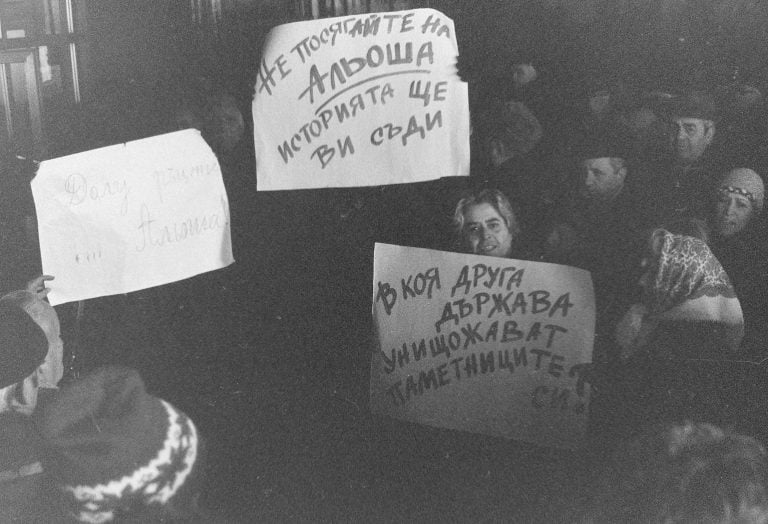 НЕ ПОСЯГАЙТЕ НА
АЛЬОША
ИСТОРИЯТА ЩЕ
ВИ СЪДИ
Долу
Альоша!
В КОЯ ДРУГА
ДЪРЖАВА
УНИЩОЖАВАТ
ПАМЕТНИЦИТЕ
СИ?